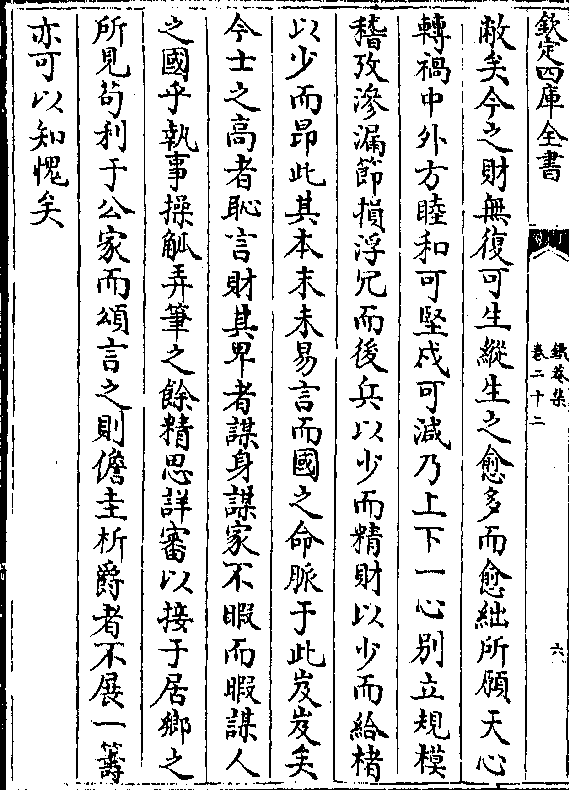 欽定四庫全書
鐵菴集
卷二十二
六
敝矣今之財無復可生縱生之愈多而愈絀所願天心
轉禍中外方睦和可堅戍可減乃上下一心别立規模
稽攷滲漏節損浮冗而後兵以少而精財以少而給楮
以少而昂此其本末未易言而國之命脈于此岌岌矣
今士之高者恥言財其卑者謀身謀家不暇而暇謀人
之國乎執事操觚弄筆之餘精思詳審以接于居鄉之
所見茍利于公家而頌言之則儋圭析爵者不展一籌
亦可以知愧矣